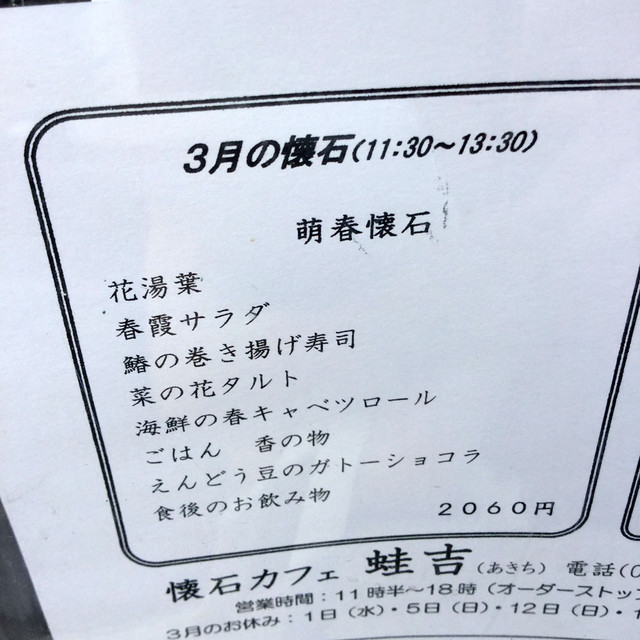 3月の懐石(11:30～13:30)
萌春懐石
花湯葉
春霞サラダ
鰆の巻き揚げ寿司
菜の花タルト
海鮮の春キャベツロール
ごはん　香の物
えんどう豆のガトーショコラ
食後のお飲み物
2060円
懐石カフェ 蛙吉(あきち) 電話(0
営業時間：11時半～18時（オーダーストップ
3月のお休み：1日（水）・5日（日）・12日（日）・1